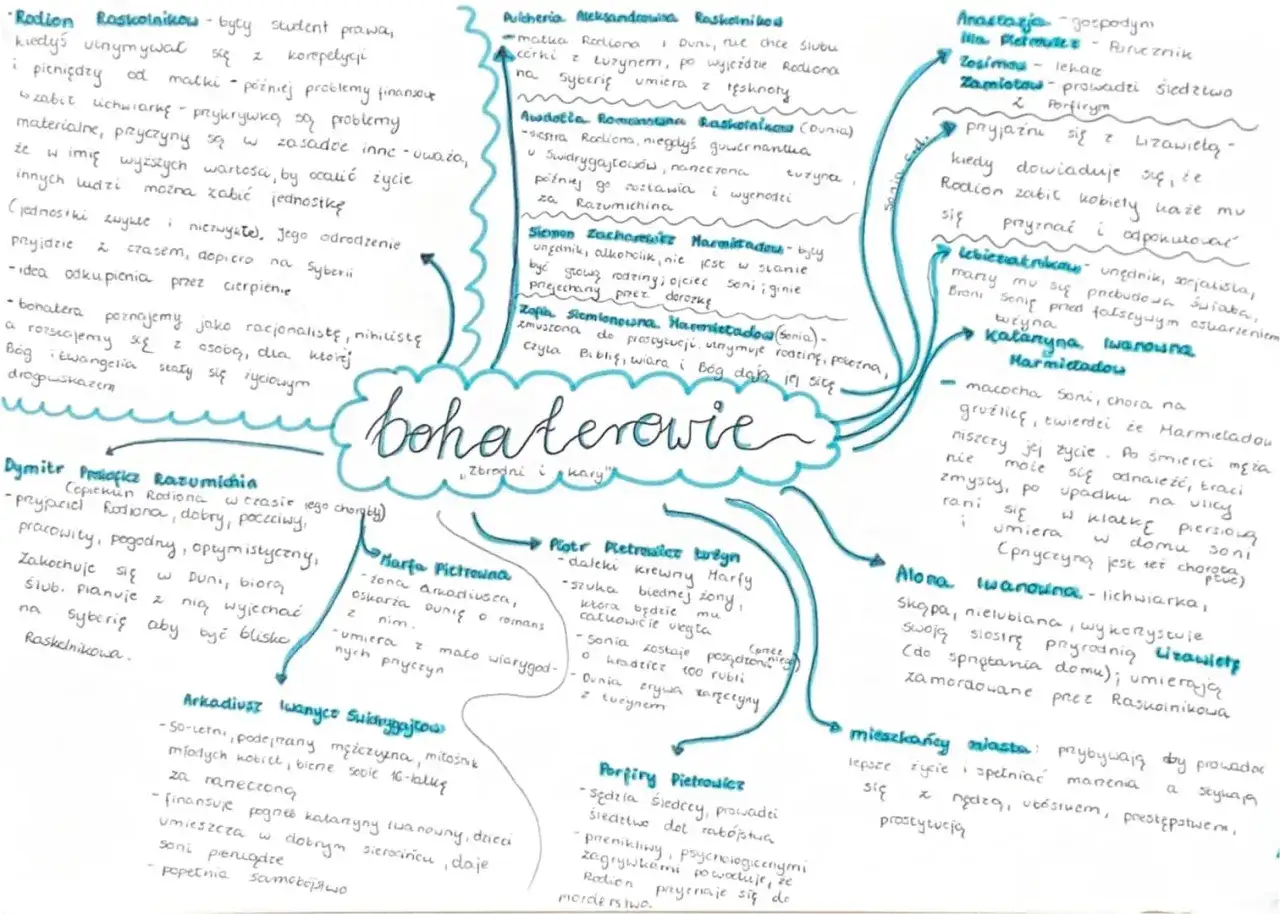 Rodion Raskolnikow - były student prawa,
kiedyś utrzymywać się z korepetycji
i pieniędzy od matki - później problemy finansowe
zabił lichwiarkę - przykrywką są problemy
materialne, przyczyny są w zasadzie inne - uważa,
że w imię wyższych wartości, by ocalić życie
innych ludzi można zabić jednostkę
(jednostki zwykłe i niezwykłe). Jego odrodzenie
przyjdzie z czasem, dopiero na Syberii
- idea odkupienia przez cierpienie
- bohatera poznajemy jako racjonalistę, nihilistę
a rozstajemy się z osobą, dla której
Bóg i ewangelia stały się życiowym
drogowskazem
Pulcheria Aleksandrowna Raskolnikow
- matka Rodiona i Duni, nie chce ślubu
córki z Łużynem, po wyjeździe Rodiona
na Syberię umiera z tęsknoty
Awdotia Romanowna Raskolnikow (Dunia)
- siostra Rodiona, niegdyś guwernantka
u Swidrygajłowów, narzeczona Łużyna,
później go zostawia i wychodzi
za Razumichina
Siemon Zacharewicz Marmieładow - były
urzędnik, alkoholik, nie jest w stanie
być głową rodziny; ojciec Soni; ginie
przejechany przez dorożkę
Zofia Siemionowna Marmieładow (Sonia) -
zmuszona do prostytucji, utrzymuje rodzinę, pobożna,
czyta Biblię, wiara i Bóg dają jej siłę
Anastazja - gospodyni
Ilia Pietrowicz - Porucznik
Zosimow - lekarz
Zamiotow - prowadzi śledztwo
z Porfirym
Sonia
przyjaźni się z Lizawietą -
kiedy dowiaduje się, że
Rodion zabił kobiety każe mu
się przyznać i odpokutować
Lebieziatnikow - urzędnik, socjalista,
marzy mu się przebudowa świata,
Broni Sonię przed fałszywym oskarżeniem
Łużyna
Katarzyna Iwanowna
Marmieładow
- macocha Soni, chora na
gruźlicę, twierdzi że Marmieładow
niszczy jej życie. Po śmierci męża
nie może się odnaleźć, traci
zmysły, po upadku na ulicy
rani się w klatkę piersiową
i umiera w domu Soni
(przyczyną jest też choroba
płuc)
bohaterowie
"Zbrodni i kary"
Dymitr Prokoficz Razumichin
(opiekun Rodiona w czasie jego choroby)
- przyjaciel Rodiona, dobry, poczciwy,
pracowity, pogodny, optymistyczny,
Zakochuje się w Duni, biorą
ślub. Planuje z nią wyjechać
na Syberię aby być blisko
Raskolnikowa.
Marfa Pietrowna
- żona Arkadiusza,
oskarża Dunię o romans
z nim.
- umiera z mało wiarygod-
nych przyczyn
Piotr Pietrowicz Łużyn
- daleki krewny Marfy
- szuka biednej żony,
która będzie mu
całkowicie uległa
- Sonia zostaje posądzona (przez niego)
o kradzież 100 rubli
- Dunia zrywa zaręczyny
z Łużynem
Alona Iwanowna - lichwiarka,
skąpa, nielubiana, wykorzystuje
swoją siostrę przyrodnią Lizawietę
(do sprzątania domu); umierają
zamordowane przez Raskolnikowa
Arkadiusz Iwanycz Swidrygajłow
- 50-letni, podejrzany mężczyzna, miłośnik
młodych kobiet, bierze sobie 16-latkę
za narzeczoną
- finansuje pogrzeb Katarzyny Iwanowny, dzieci
umieszcza w dobrym sierocińcu, daje
Soni pieniądze
- popełnia samobójstwo
Porfiry Pietrowicz
- sędzia śledczy, prowadzi
śledztwo dot. zabójstwa
- przenikliwy, psychologicznymi
zagrywkami powoduje, że
Rodion przyznaje się do
morderstwa.
mieszkańcy miasta: przybywają aby prowadzić
lepsze życie i spełniać marzenia a stykają
się z nędzą, ubóstwem, przestępstwem,
prostytucją